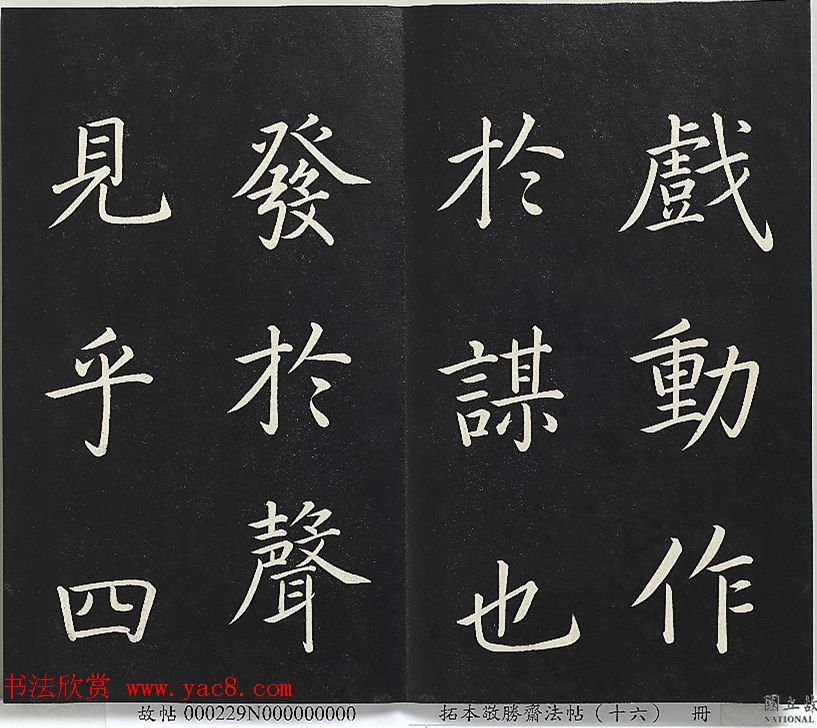 戲動作
於謀也
發於聲
見乎四
书法欣赏 www.yac8.com
故帖 000229N000000000
拓本敬勝齋法帖（十六） 冊
國立故
NATIONAL